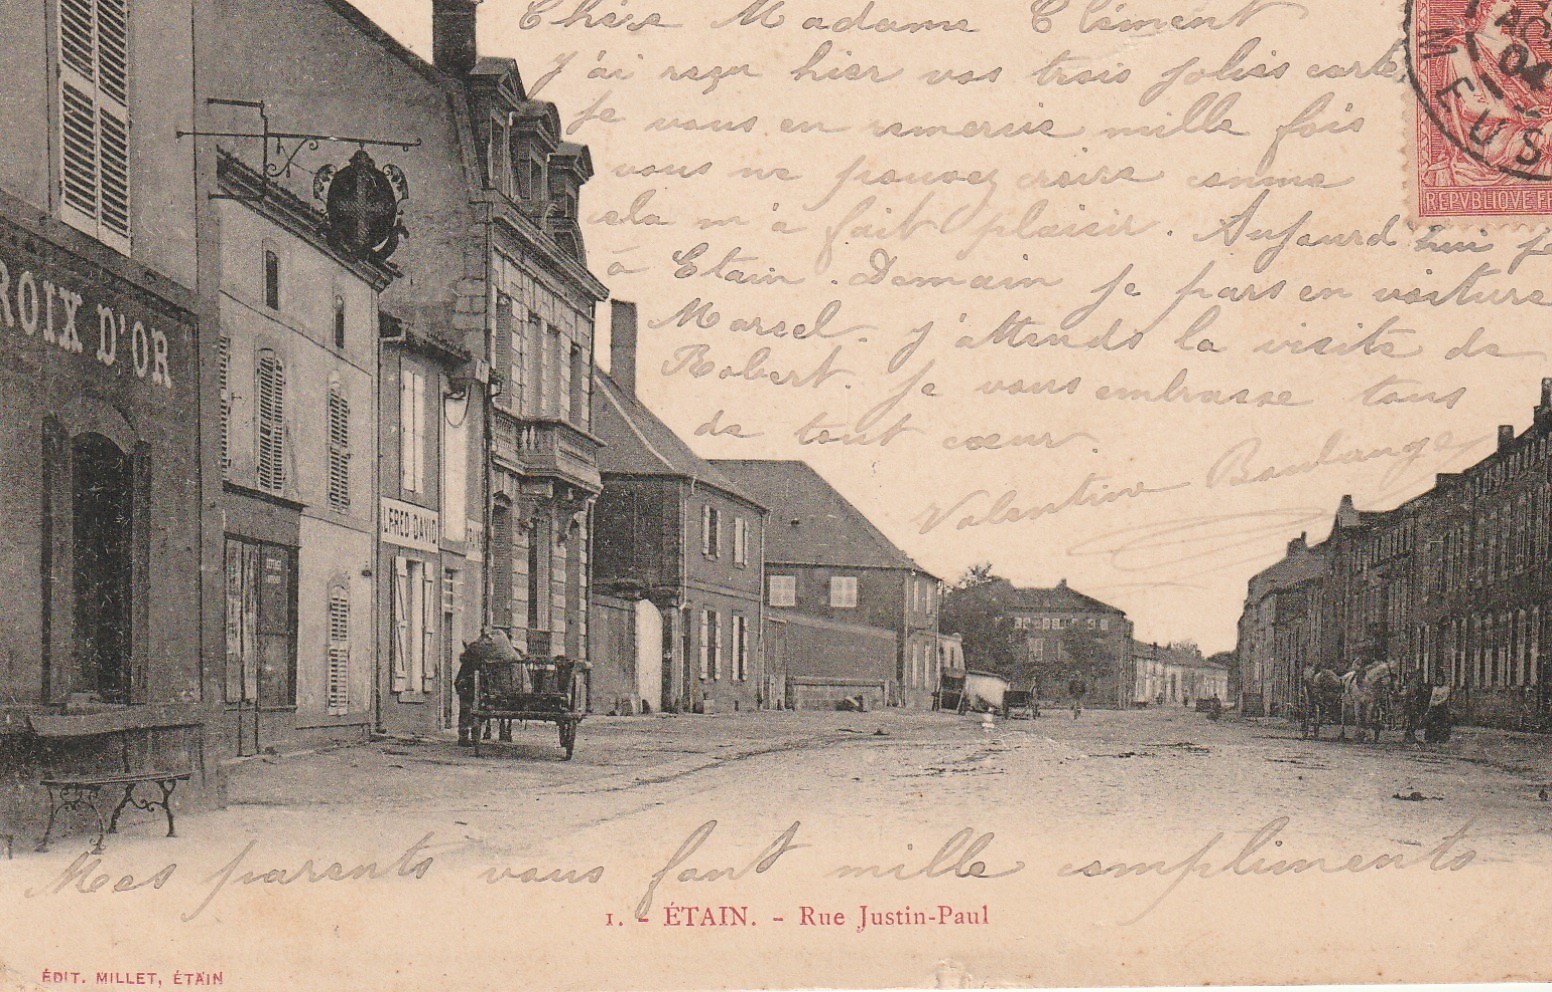 Chère Madame Clément
J'ai reçu hier vos trois jolies cartes
je vous en remercie mille fois
vous ne pouvez croire comme
cela m'a fait plaisir. Aujourd'hui je
à Etain. Demain je pars en voiture
Marcel. J'attends la visite de
Robert. Je vous embrasse tous
de tout cœur.
Valentine Boulanger
AO
04
MEUSE
REPVBLIQVE FR
ROIX D'OR
LFRED DAVID
Mes parents vous font mille compliments
1. - ÉTAIN. - Rue Justin-Paul
ÉDIT. MILLET, ÉTAIN